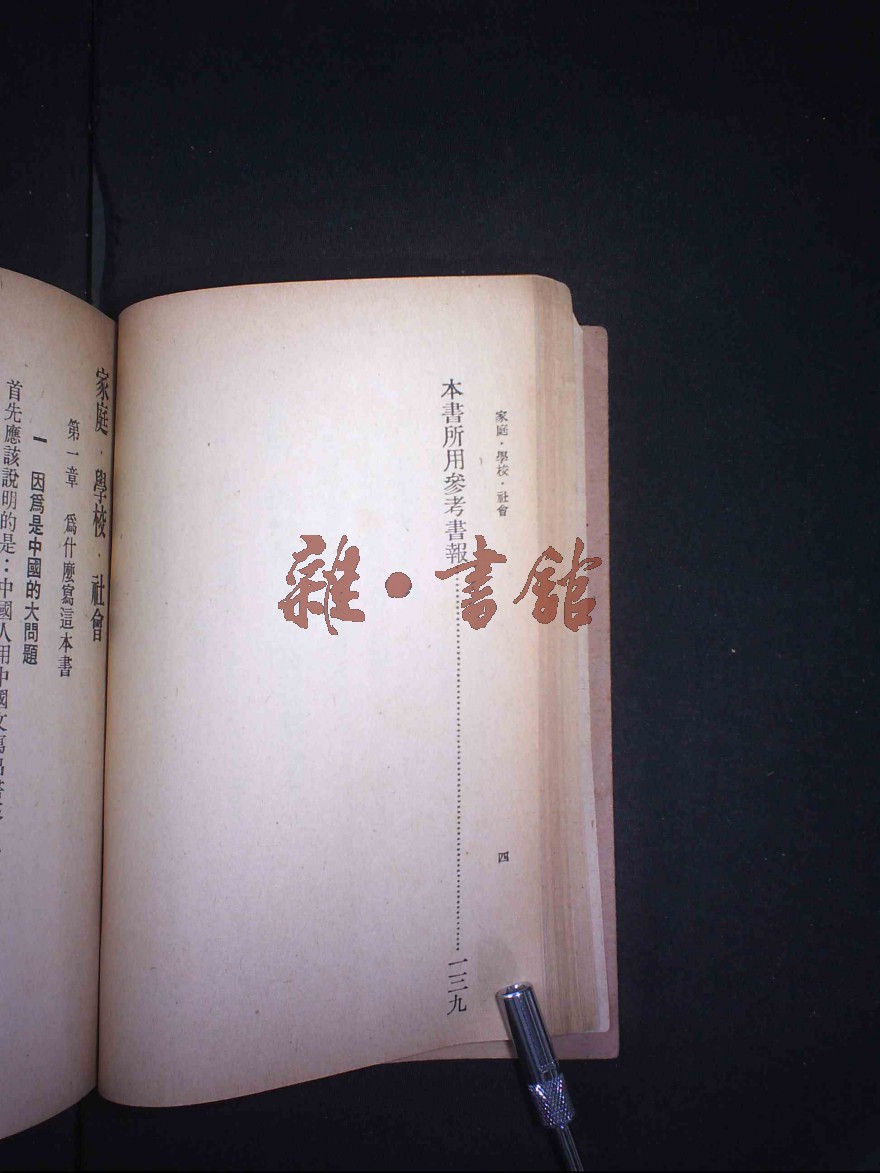 家庭·學校·社會
四
本書所用參考書報……一三九
雜·書館
家庭·學校·社會
第一章 爲什麼寫這本書
一 因爲是中國的大問題
首先應該說明的是：中國人用中國文寫